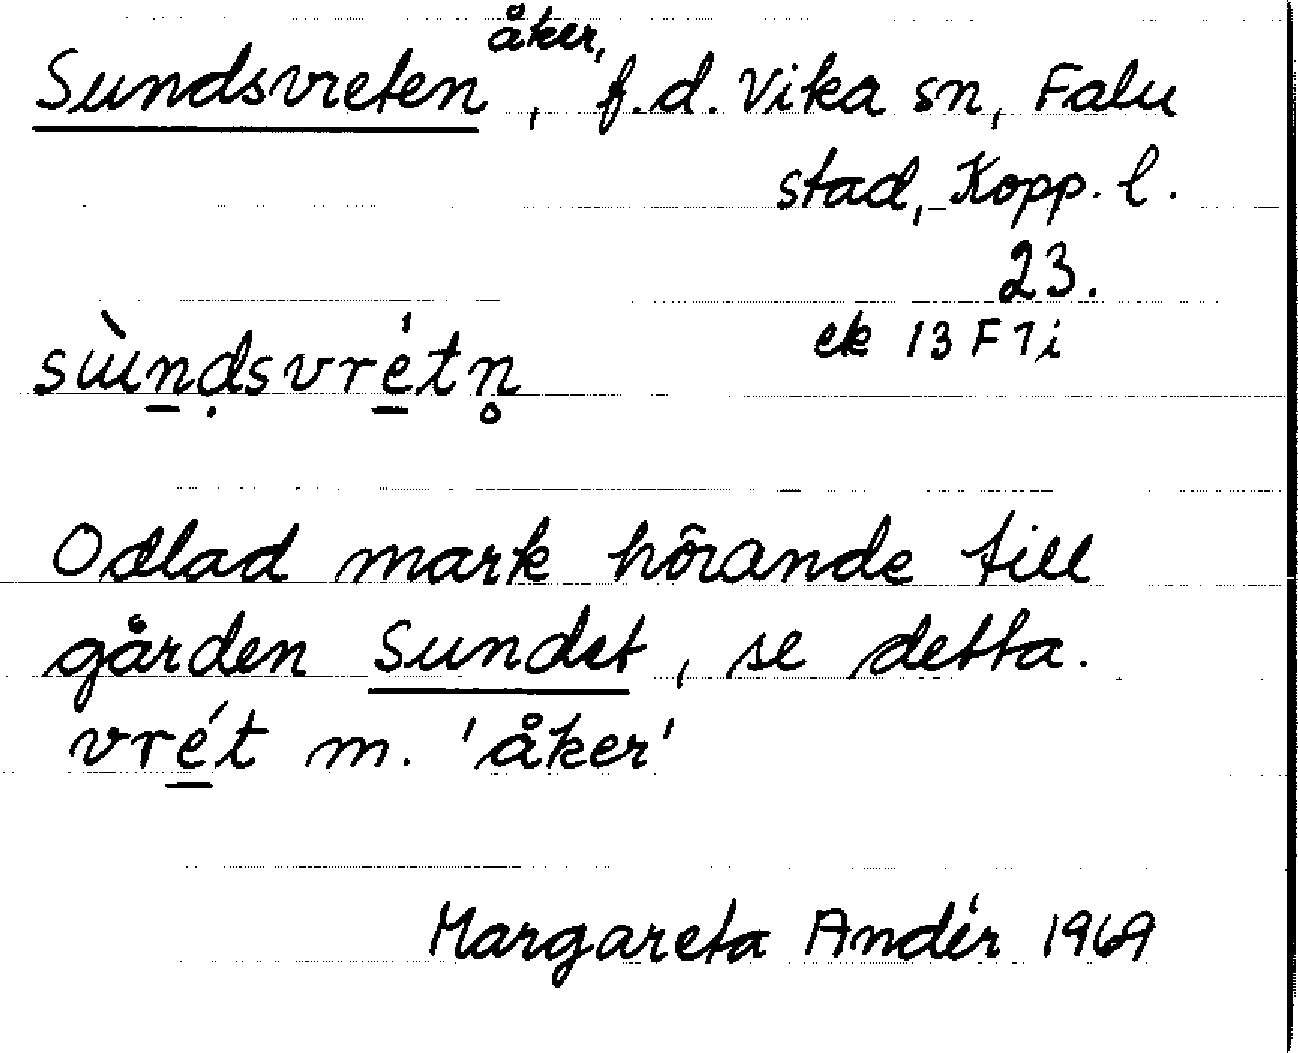 åker,
Sundsvreten, f.d. Vika sn, Falu
stad, Kopp. l.
23.
ek 13 F 7i
sɯ̀n̠ḍsvré̠tn̥
Odlad mark hörande till
gården Sundet, se detta.
vré̠t m. 'åker'
Margareta Andér 1969